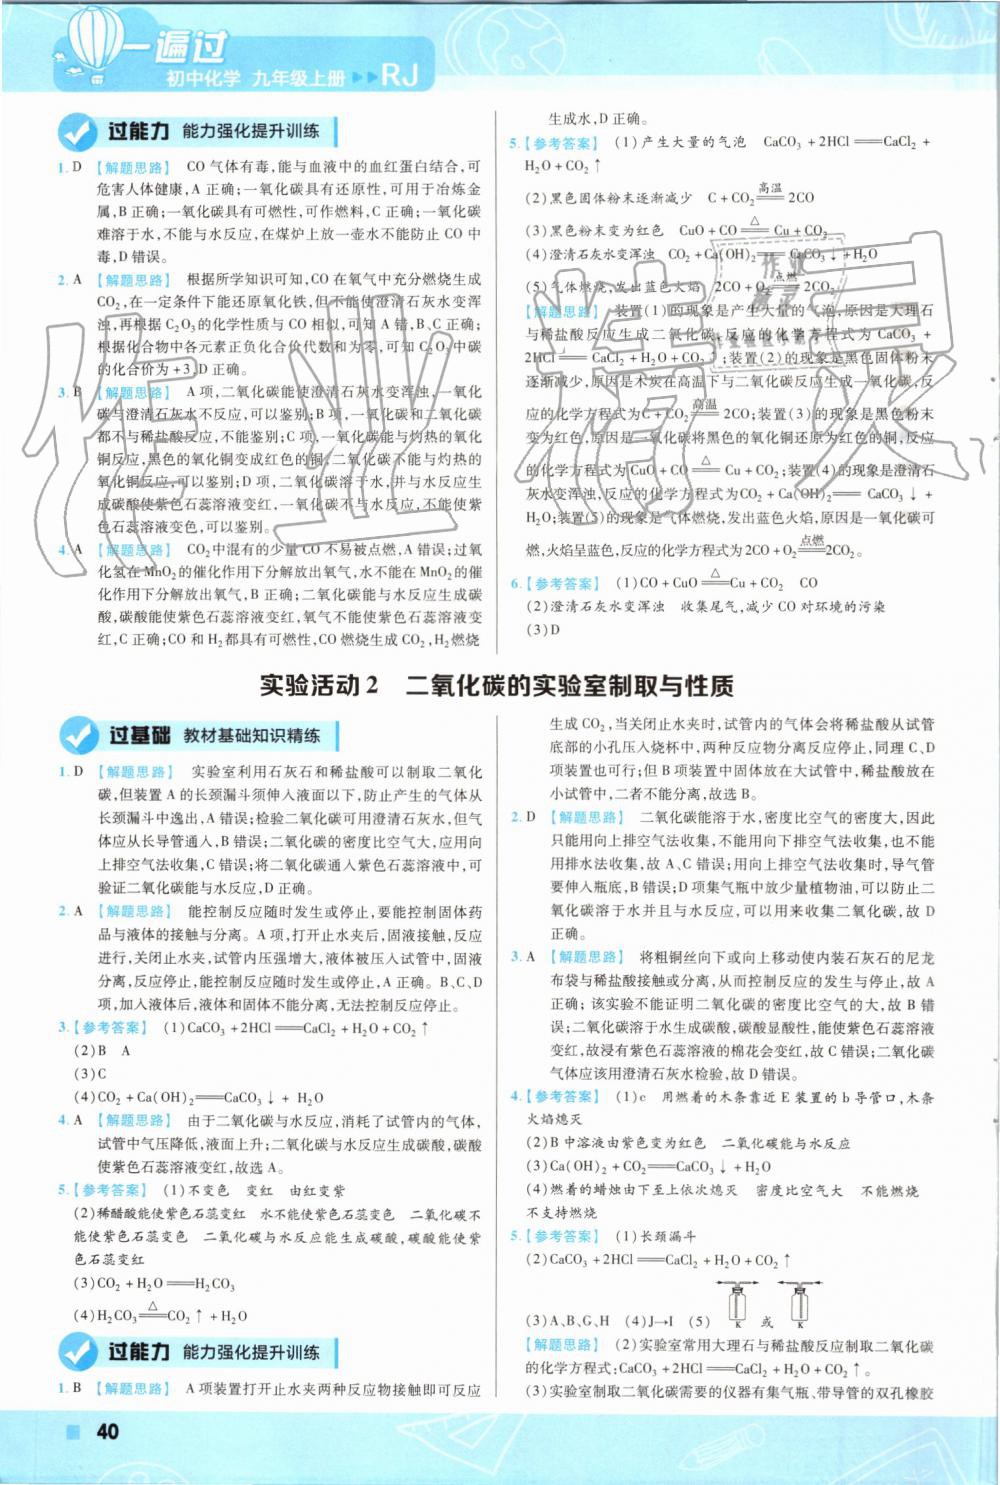 一遍过
初中化学 九年级上册 ▶▶RJ
过能力 能力强化提升训练
1. D 【解题思路】 CO气体有毒,能与血液中的血红蛋白结合,可
危害人体健康,A正确;一氧化碳具有还原性,可用于冶炼金
属,B正确;一氧化碳具有可燃性,可作燃料,C正确;一氧化碳
难溶于水,不能与水反应,在煤炉上放一壶水不能防止CO中
毒,D错误。
2. A 【解题思路】 根据所学知识可知,CO在氧气中充分燃烧生成
CO₂,在一定条件下能还原氧化铁,但不能使澄清石灰水变浑
浊,再根据C₂O₃的化学性质与CO相似,可知A错,B、C正确;
根据化合物中各元素正负化合价代数和为零,可知C₂O₃中碳
的化合价为+3,D正确。
3. B 【解题思路】 A项,二氧化碳能使澄清石灰水变浑浊,一氧化
碳与澄清石灰水不反应,可以鉴别;B项,一氧化碳和二氧化碳
都不与稀盐酸反应,不能鉴别;C项,一氧化碳能与灼热的氧化
铜反应,黑色的氧化铜变成红色的铜,二氧化碳不能与灼热的
氧化铜反应,可以鉴别;D项,二氧化碳溶于水,并与水反应生
成碳酸使紫色石蕊溶液变红,一氧化碳不与水反应,不能使紫
色石蕊溶液变色,可以鉴别。
4. A 【解题思路】 CO₂中混有的少量CO不易被点燃,A错误;过氧
化氢在MnO₂的催化作用下分解放出氧气,水不能在MnO₂的催
化作用下分解放出氧气,B正确;二氧化碳能与水反应生成碳
酸,碳酸能使紫色石蕊溶液变红,氧气不能使紫色石蕊溶液变
红,C正确;CO和H₂都具有可燃性,CO燃烧生成CO₂,H₂燃烧
生成水,D正确。
5.【参考答案】 (1)产生大量的气泡 CaCO₃+2HCl══CaCl₂+
H₂O+CO₂↑
(2)黑色固体粉末逐渐减少 C+CO₂ 高温══ 2CO
(3)黑色粉末变为红色 CuO+CO △══ Cu+CO₂
(4)澄清石灰水变浑浊 CO₂+Ca(OH)₂══CaCO₃↓+H₂O
(5)气体燃烧,发出蓝色火焰 2CO+O₂ 点燃══ 2CO₂
【解题思路】 装置(1)的现象是产生大量的气泡,原因是大理石
与稀盐酸反应生成二氧化碳,反应的化学方程式为CaCO₃+
2HCl══CaCl₂+H₂O+CO₂↑;装置(2)的现象是黑色固体粉末
逐渐减少,原因是木炭在高温下与二氧化碳反应生成一氧化碳,反
应的化学方程式为C+CO₂ 高温══ 2CO;装置(3)的现象是黑色粉末
变为红色,原因是一氧化碳将黑色的氧化铜还原为红色的铜,反应
的化学方程式为CuO+CO △══ Cu+CO₂;装置(4)的现象是澄清石
灰水变浑浊,反应的化学方程式为CO₂+Ca(OH)₂══CaCO₃↓+
H₂O;装置(5)的现象是气体燃烧,发出蓝色火焰,原因是一氧化碳可
燃,火焰呈蓝色,反应的化学方程式为2CO+O₂ 点燃══ 2CO₂。
6.【参考答案】 (1)CO+CuO △══ Cu+CO₂ CO
(2)澄清石灰水变浑浊 收集尾气,减少CO对环境的污染
(3)D
实验活动2 二氧化碳的实验室制取与性质
过基础 教材基础知识精练
1. D 【解题思路】 实验室利用石灰石和稀盐酸可以制取二氧化
碳,但装置A的长颈漏斗须伸入液面以下,防止产生的气体从
长颈漏斗中逸出,A错误;检验二氧化碳可用澄清石灰水,但气
体应从长导管通入,B错误;二氧化碳的密度比空气大,应用向
上排空气法收集,C错误;将二氧化碳通入紫色石蕊溶液中,可
验证二氧化碳能与水反应,D正确。
2. A 【解题思路】 能控制反应随时发生或停止,要能控制固体药
品与液体的接触与分离。A项,打开止水夹后,固液接触,反应
进行,关闭止水夹,试管内压强增大,液体被压入试管中,固液
分离,反应停止,能控制反应随时发生或停止,A正确。B、C、D
项,加入液体后,液体和固体不能分离,无法控制反应停止。
3.【参考答案】 (1)CaCO₃+2HCl══CaCl₂+H₂O+CO₂↑
(2)B A
(3)C
(4)CO₂+Ca(OH)₂══CaCO₃↓+H₂O
4. A 【解题思路】 由于二氧化碳与水反应,消耗了试管内的气体,
试管中气压降低,液面上升;二氧化碳与水反应生成碳酸,碳酸
使紫色石蕊溶液变红,故选A。
5.【参考答案】 (1)不变色 变红 由红变紫
(2)稀醋酸能使紫色石蕊变红 水不能使紫色石蕊变色 二氧化碳不
能使紫色石蕊变色 二氧化碳与水反应能生成碳酸,碳酸能使紫
色石蕊变红
(3)CO₂+H₂O══H₂CO₃
(4)H₂CO₃ △══ CO₂↑+H₂O
过能力 能力强化提升训练
1. B 【解题思路】 A项装置打开止水夹两种反应物接触即可反应
生成CO₂,当关闭止水夹时,试管内的气体会将稀盐酸从试管
底部的小孔压入烧杯中,两种反应物分离反应停止,同理C、D
项装置也可行;但B项装置中固体放在大试管中,稀盐酸放在
小试管中,二者不能分离,故选B。
2. D 【解题思路】 二氧化碳能溶于水,密度比空气的密度大,因此
只能用向上排空气法收集,不能用向下排空气法收集,也不能
用排水法收集,故A、C错误;用向上排空气法收集时,导气管
要伸入瓶底,B错误;D项集气瓶中放少量植物油,可以防止二
氧化碳溶于水并且与水反应,可以用来收集二氧化碳,故D
正确。
3. A 【解题思路】 将粗铜丝向下或向上移动使内装石灰石的尼龙
布袋与稀盐酸接触或分离,从而控制反应的发生与停止,故A
正确;该实验不能证明二氧化碳的密度比空气的大,故B错
误;二氧化碳溶于水生成碳酸,碳酸显酸性,能使紫色石蕊溶液
变红,故浸有紫色石蕊溶液的棉花会变红,故C错误;二氧化碳
气体应该用澄清石灰水检验,故D错误。
4.【参考答案】 (1)c 用燃着的木条靠近E装置的b导管口,木条
火焰熄灭
(2)B中溶液由紫色变为红色 二氧化碳能与水反应
(3)Ca(OH)₂+CO₂══CaCO₃↓+H₂O
(4)燃着的蜡烛由下至上依次熄灭 密度比空气大 不能燃烧
不支持燃烧
5.【参考答案】 (1)长颈漏斗
(2)CaCO₃+2HCl══CaCl₂+H₂O+CO₂↑
(3)A、B、G、H (4)J→I (5) K 或 K
【解题思路】 (2)实验室常用大理石与稀盐酸反应制取二氧化碳
的化学方程式:CaCO₃+2HCl══CaCl₂+H₂O+CO₂↑。
(3)实验室制取二氧化碳需要的仪器有集气瓶、带导管的双孔橡胶
40
作业精灵